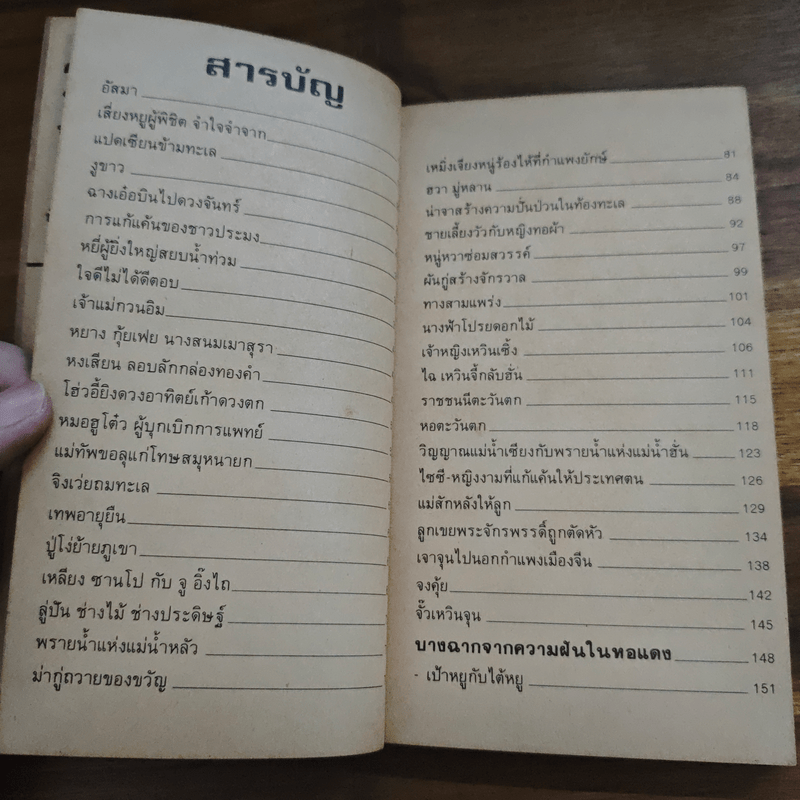 สารบัญ
อัสมา
เสี่ยงหยูผู้พิชิต จำใจจำจาก
แปดเซียนข้ามทะเล
งูขาว
ฉางเอ๋อบินไปดวงจันทร์
การแก้แค้นของชาวประมง
หยี่ผู้ยิ่งใหญ่สยบน้ำท่วม
ใจดีไม่ได้ดีตอบ
เจ้าแม่กวนอิม
หยาง กุ้ยเฟย นางสนมเมาสุรา
หงเสียน ลอบลักกล่องทองคำ
โฮ่วอี้ยิงดวงอาทิตย์เก้าดวงตก
หมอฮูโต๋ว ผู้บุกเบิกการแพทย์
แม่ทัพขอลุแก่โทษสมุหนายก
จิงเว่ยถมทะเล
เทพอายุยืน
ปู่โง่ย้ายภูเขา
เหลียง ซานโป กับ จู อิ๊งไถ
ลู่ปัน ช่างไม้ ช่างประดิษฐ์
พรายน้ำแห่งแม่น้ำหลัว
ม่ากู่ถวายของขวัญ
เหมิ่งเจียงหนู่ร้องไห้ที่กำแพงยักษ์ 81
ฮวา มู่หลาน 84
น่าจาสร้างความปั่นป่วนในท้องทะเล 88
ชายเลี้ยงวัวกับหญิงทอผ้า 92
หนู่หวาซ่อมสวรรค์ 97
ผันกู่สร้างจักรวาล 99
ทางสามแพร่ง 101
นางฟ้าโปรยดอกไม้ 104
เจ้าหญิงเหวินเซิ้ง 106
ไฉ เหวินจี้กลับฮั่น 111
ราชชนนีตะวันตก 115
หอตะวันตก 118
วิญญาณแม่น้ำเซียงกับพรายน้ำแห่งแม่น้ำฮั่น 123
ไซซี-หญิงงามที่แก้แค้นให้ประเทศตน 126
แม่สักหลังให้ลูก 129
ลูกเขยพระจักรพรรดิ์ถูกตัดหัว 134
เจาจุนไปนอกกำแพงเมืองจีน 138
จงคุ้ย 142
จั๊วเหวินจุน 145
บางฉากจากความฝันในหอแดง 148
- เป้าหยูกับไต้หยู 151